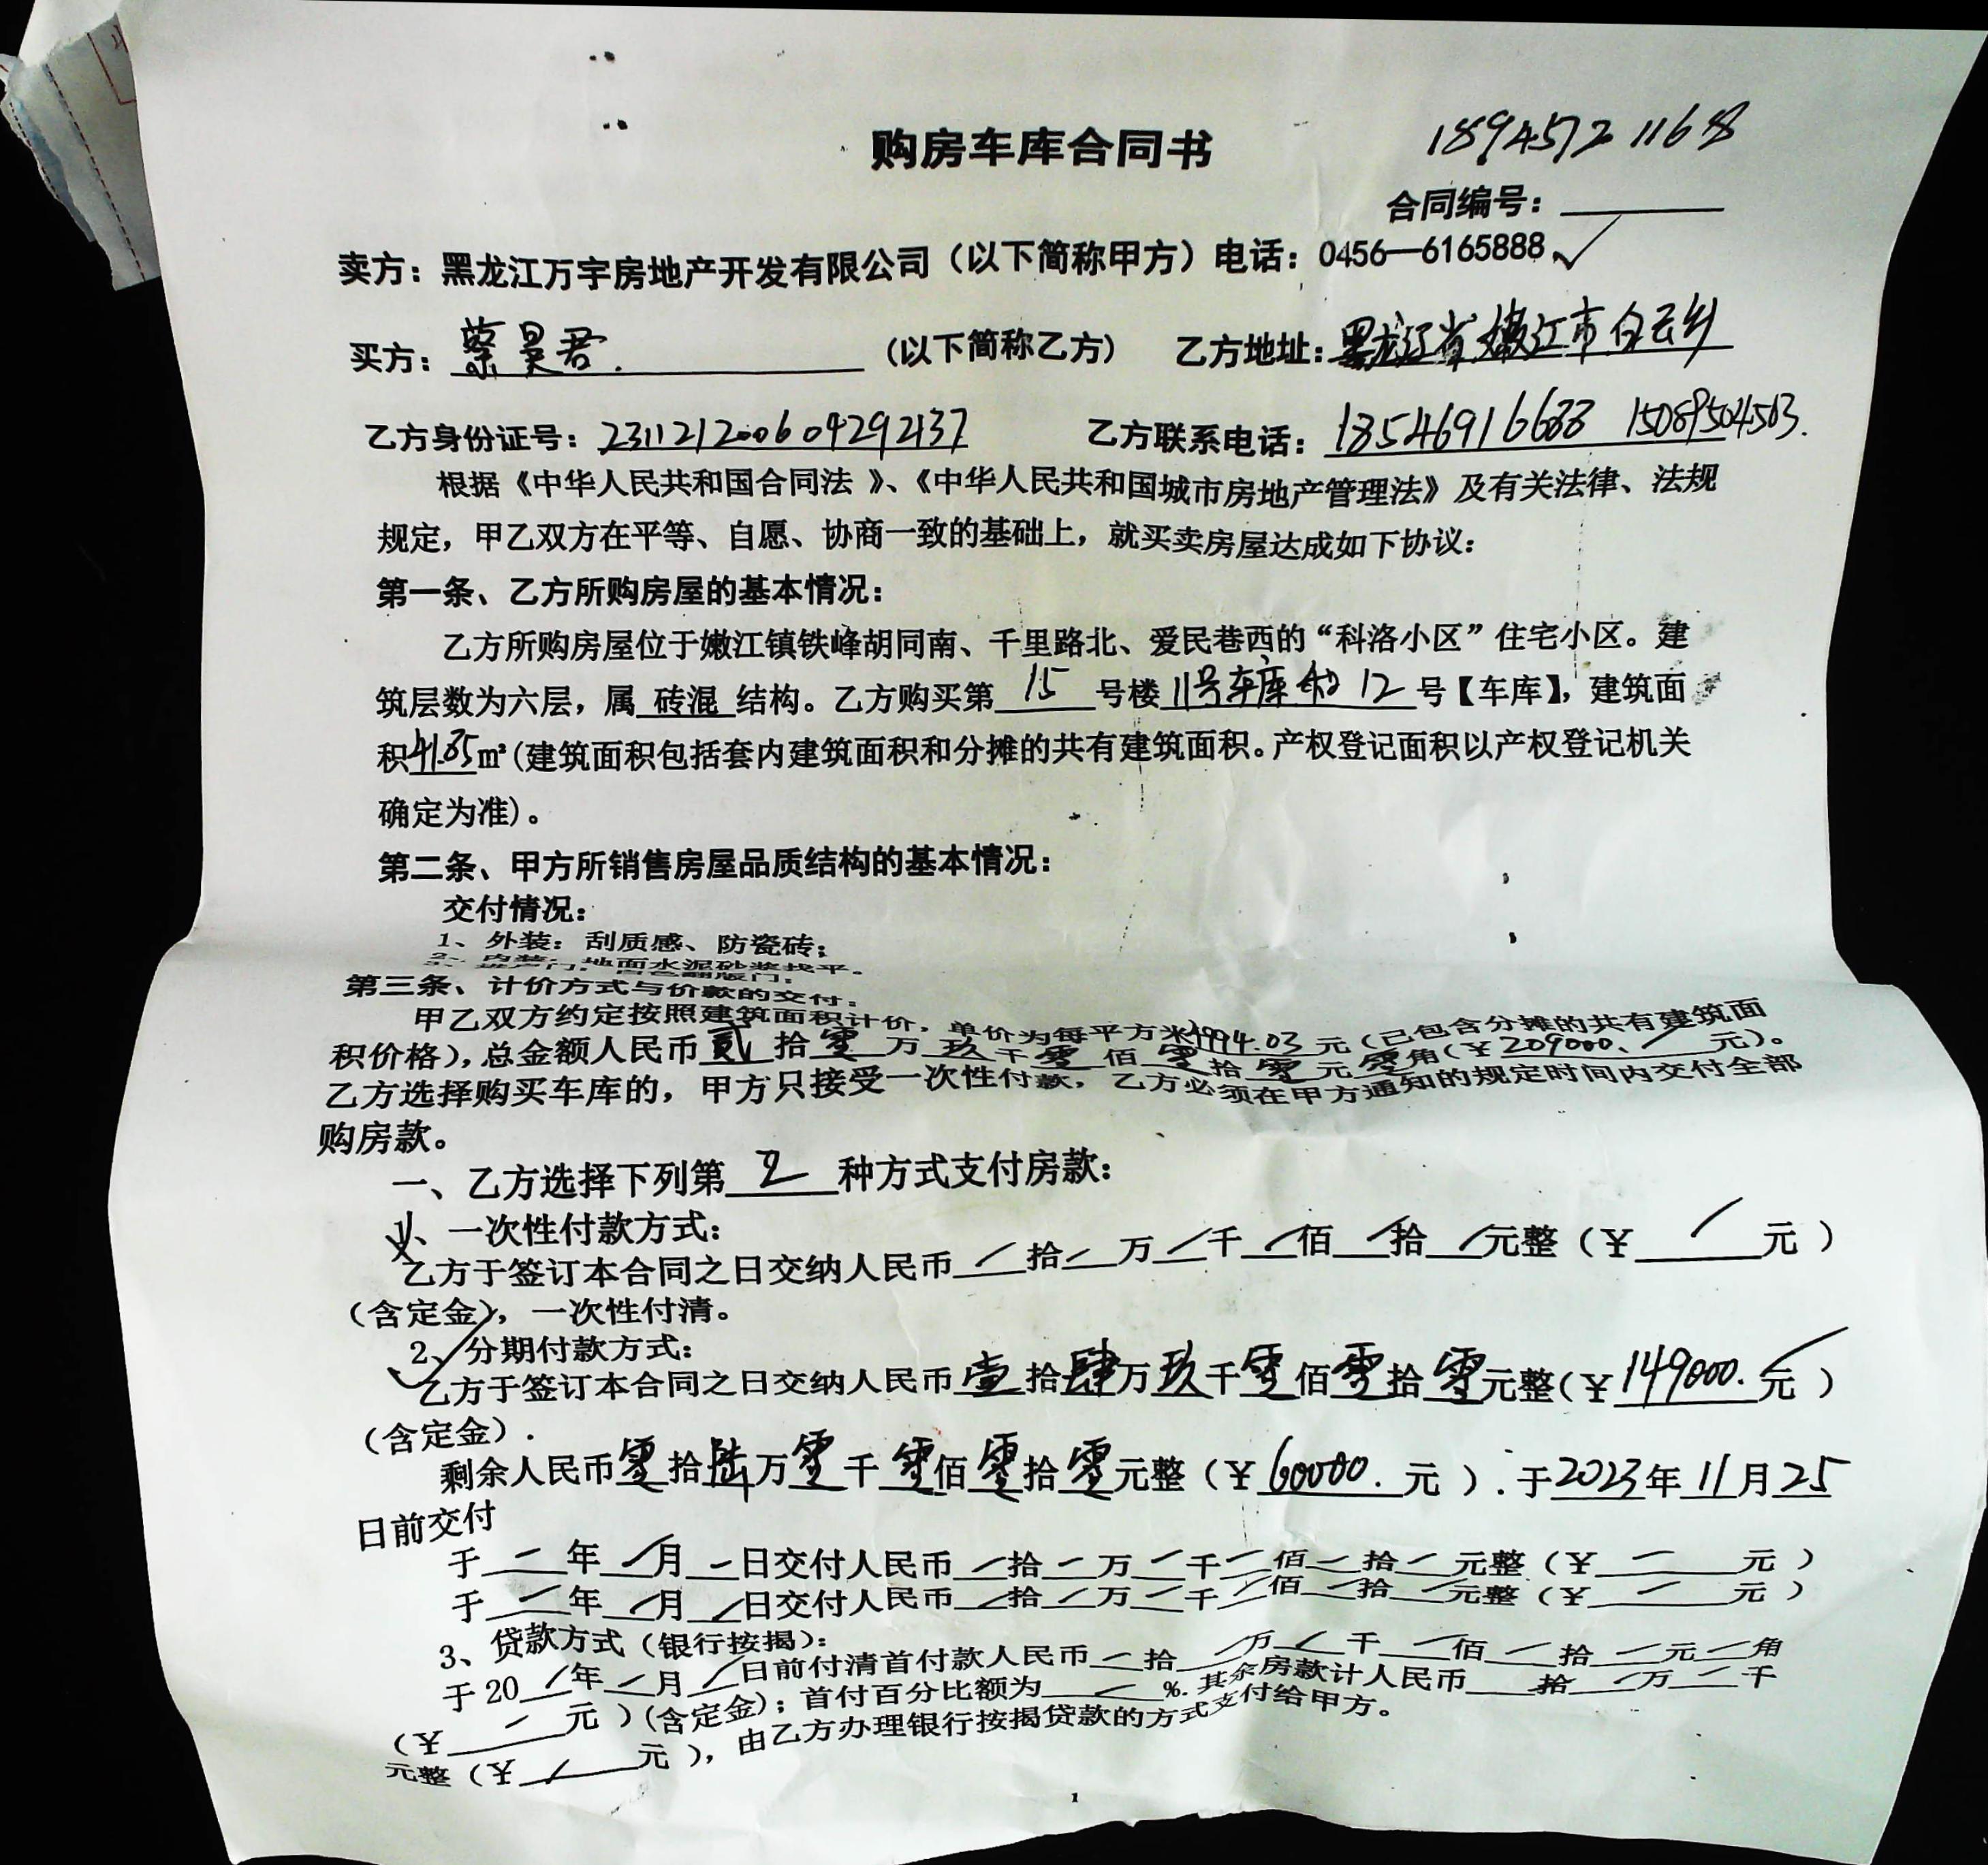 购房车库合同书
18945721168
合同编号：
卖方：黑龙江万宇房地产开发有限公司（以下简称甲方）电话：0456—6165888 ✓
买方：蔡昊君.（以下简称乙方） 乙方地址：黑龙江省嫩江市白云乡
乙方身份证号：231121200604292137 乙方联系电话：18546916688 15089504503.
根据《中华人民共和国合同法 》、《中华人民共和国城市房地产管理法》及有关法律、法规
规定，甲乙双方在平等、自愿、协商一致的基础上，就买卖房屋达成如下协议：
第一条、乙方所购房屋的基本情况：
乙方所购房屋位于嫩江镇铁峰胡同南、千里路北、爱民巷西的“科洛小区”住宅小区。建
筑层数为六层，属 砖混 结构。乙方购买第 15 号楼 11号车库和12 号【车库】，建筑面
积 41.85 ㎡（建筑面积包括套内建筑面积和分摊的共有建筑面积。产权登记面积以产权登记机关
确定为准）。
第二条、甲方所销售房屋品质结构的基本情况：
交付情况：
1、外装：刮质感、防瓷砖；
2、内装：地面水泥砂浆找平。
第三条、计价方式与价款的交付：
甲乙双方约定按照建筑面积计价，单价为每平方米 4994.03 元（已包含分摊的共有建筑面
积价格），总金额人民币 贰 拾 零 万 玖 千 零 佰 零 拾 零 元 零 角（￥209000. 元）。
乙方选择购买车库的，甲方只接受一次性付款，乙方必须在甲方通知的规定时间内交付全部
购房款。
一、乙方选择下列第 2 种方式支付房款：
1、一次性付款方式：
乙方于签订本合同之日交纳人民币 / 拾 / 万 / 千 / 佰 / 拾 / 元整（￥ / 元 ）
（含定金），一次性付清。
2、分期付款方式：
乙方于签订本合同之日交纳人民币 壹 拾 肆 万 玖 千 零 佰 零 拾 零 元整（￥149000. 元 ）
（含定金）.
剩余人民币 零 拾 陆 万 零 千 零 佰 零 拾 零 元整（￥60000. 元 ）.于 2023 年 11 月 25
日前交付
于 / 年 / 月 / 日交付人民币 / 拾 / 万 / 千 / 佰 / 拾 / 元整（￥ / 元 ）
于 / 年 / 月 / 日交付人民币 / 拾 / 万 / 千 / 佰 / 拾 / 元整（￥ / 元 ）
3、贷款方式（银行按揭）：
于 20 / 年 / 月 / 日前付清首付款人民币 / 拾 / 万 / 千 / 佰 / 拾 / 元 / 角
（￥ / 元 ）（含定金）；首付百分比额为 / %.其余房款计人民币 拾 / 万 / 千
元整（￥ / 元 ），由乙方办理银行按揭贷款的方式支付给甲方。
1